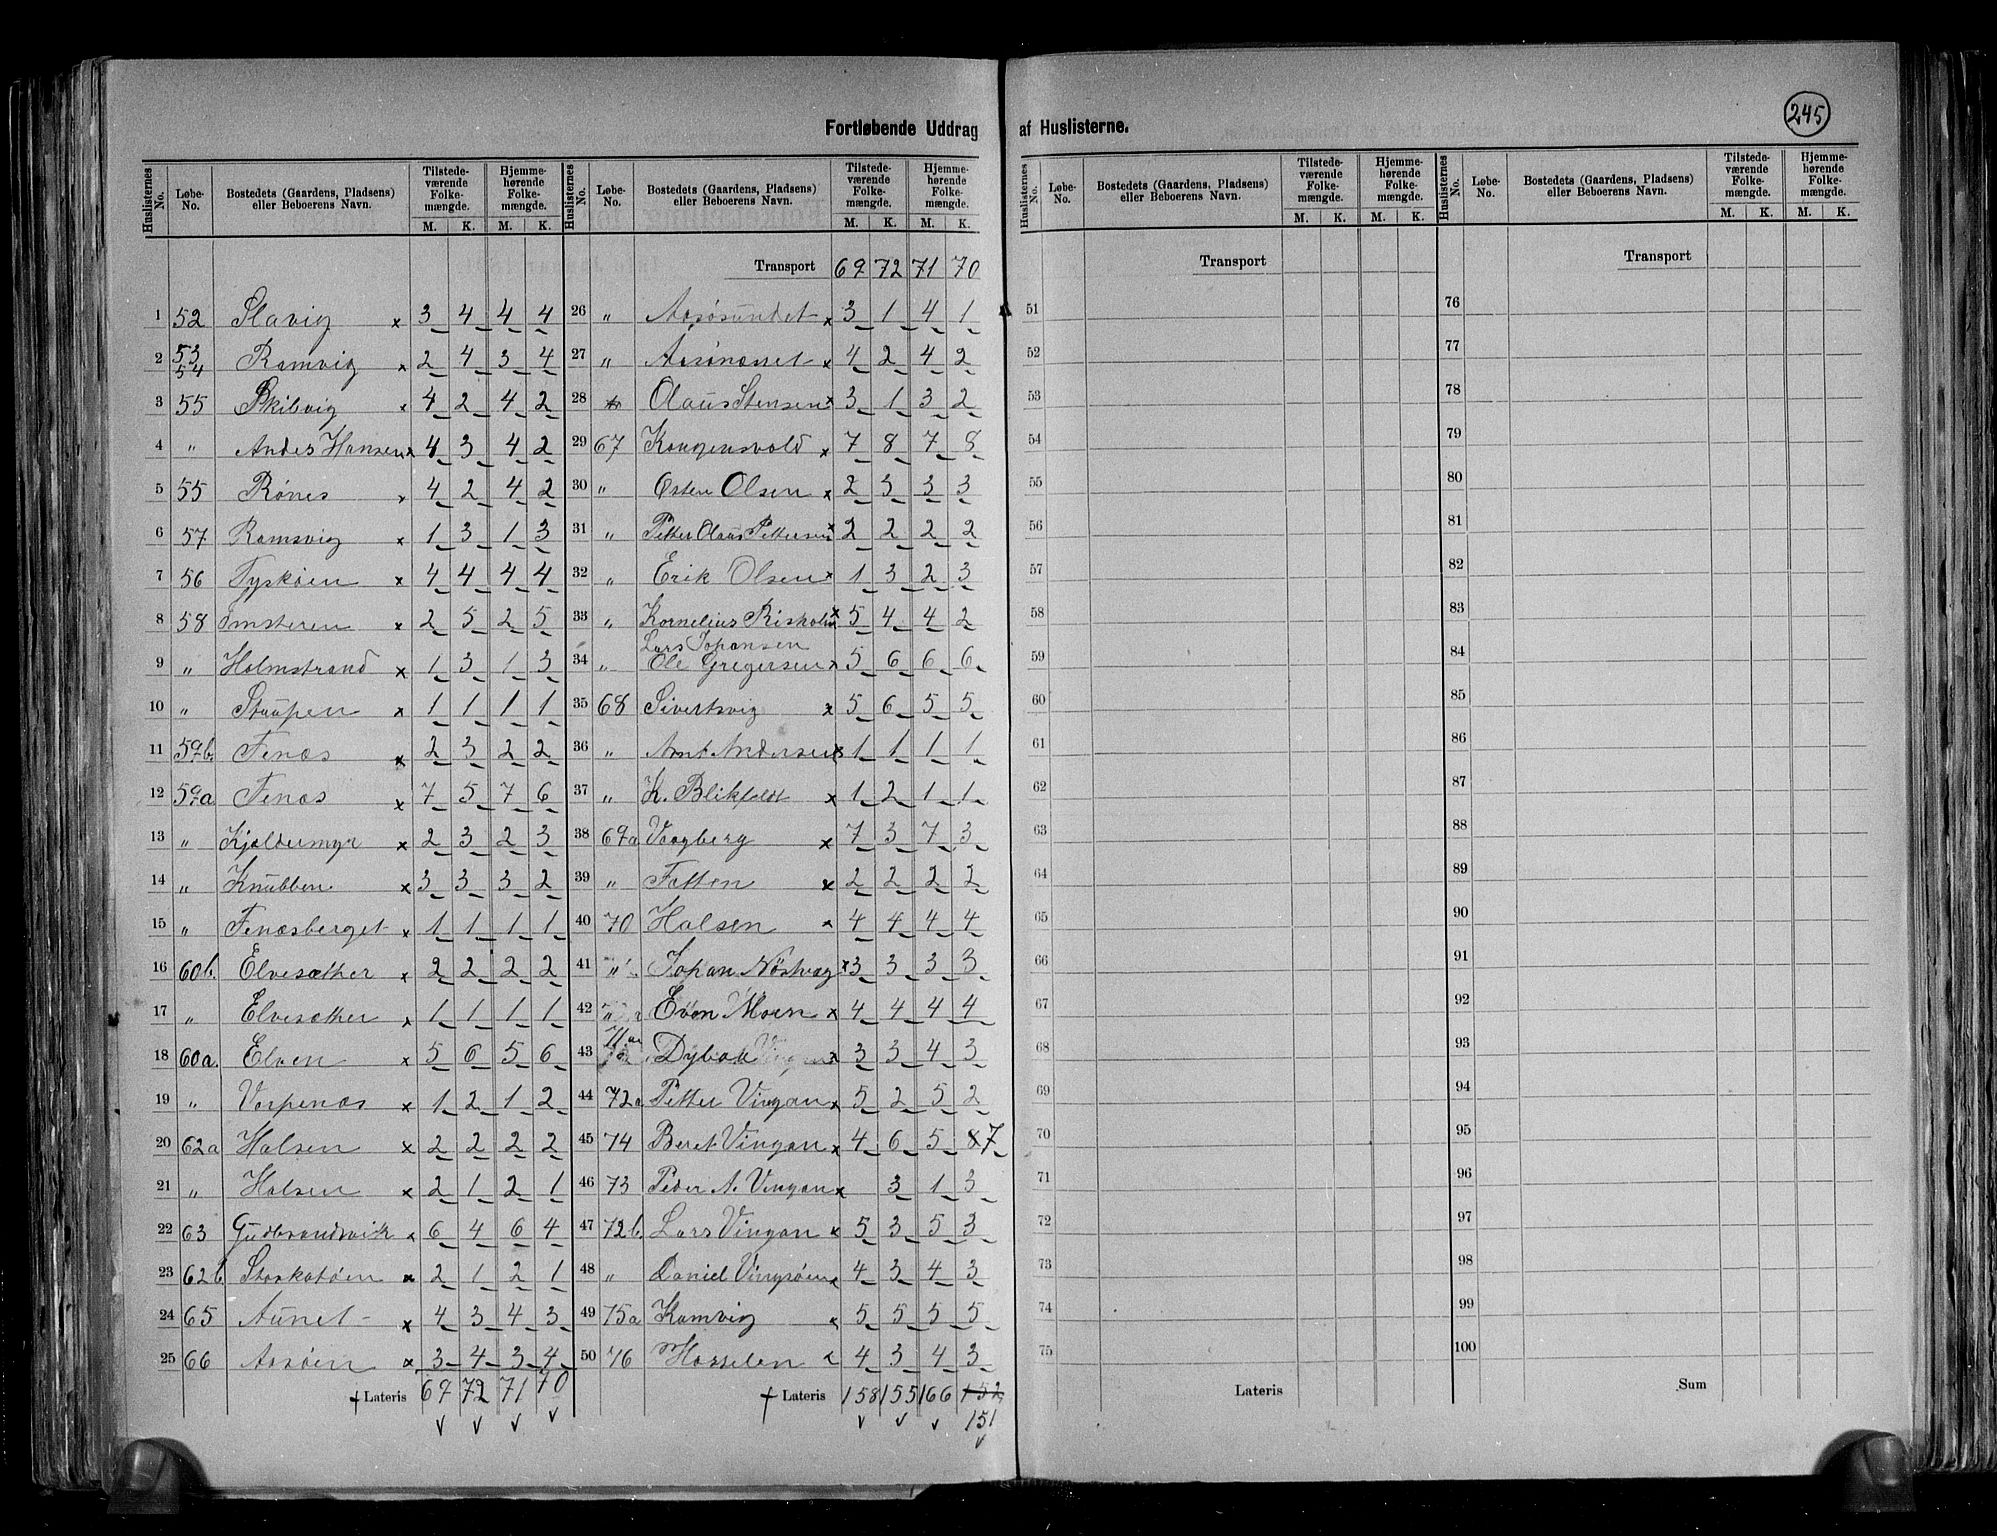 245
Fortløbende Uddrag af Huslisterne.
Huslisternes No. Løbe-No. Bostedets (Gaardens, Pladsens) eller Beboerens Navn. Tilstedeværende Folkemængde. M. K. Hjemmehørende Folkemængde. M. K.
1 52 Slavig x 3 4 4 4
2 53 54 Ramvig x 2 4 3 4
3 55 Skibvig x 4 2 4 2
4 " Anders Hansen x 4 3 4 2
5 55 Rønes x 4 2 4 2
6 57 Ramsvig x 1 3 1 3
7 56 Tyskøen x 4 4 4 4
8 58 Imsteren x 2 5 2 5
9 " Holmstrand x 1 3 1 3
10 " Staupen x 1 1 1 1
11 59b. Fenæs x 2 3 2 2
12 59a Fenæs x 7 5 7 6
13 " Kjoldermyr x 2 3 2 3
14 " Knubben x 3 3 3 2
15 " Fenæsberget x 1 1 1 1
16 60b. Elvesæther x 2 2 2 2
17 " Elvesæther x 1 1 1 1
18 60a. Elven x 5 6 5 6
19 " Vorpenæs x 1 2 1 2
20 62a Halsen x 2 2 2 2
21 " Halsen x 2 1 2 1
22 63 Gudbrandsvik x 6 4 6 4
23 62b Storkatøen x 2 1 2 1
24 65 Aunet x 4 3 4 3
25 66 Aasøen x 3 4 3 4
† Lateris 69 72 71 70
Huslisternes No. Løbe-No. Bostedets (Gaardens, Pladsens) eller Beboerens Navn. Tilstedeværende Folkemængde. M. K. Hjemmehørende Folkemængde. M. K.
Transport 69 72 71 70
26 " Aasøsundet x 3 1 4 1
27 " Aasønesset x 4 2 4 2
28 Olaus Stensen x 3 1 3 2
29 67 Kongensvold x 7 8 7 8
30 " Osten Olsen x 2 3 3 3
31 " Petter Olaus Pettersen x 2 2 2 2
32 " Erik Olsen x 1 3 2 3
33 " Kornelius Risholm x 5 4 4 2
Lars Johansen
34 " Ole Gregersen x 5 6 6 6
35 68 Sivertsvig x 5 6 5 5
36 " Arnt Andersen x 1 1 1 1
37 " K. Blikfeldt x 1 2 1 1
38 69a Vaagberg x 7 3 7 3
39 " Fatten x 2 2 2 2
40 70 Halsen x 4 4 4 4
41 " Johan Nøstvag x 3 3 3 3
42 " Even Moen x 4 4 4 4
43 71a Dybak x 3 3 4 3
44 72a Petter Vingan x 5 2 5 2
45 74 Beret Vingan x 4 6 5 8 7
46 73 Peder A. Vingan x 3 1 3
47 72b. Lars Vingan x 5 3 5 3
48 " Daniel Vingsøen x 4 3 4 3
49 75a Kamvig x 5 5 5 5
50 76 Hasselen x 4 3 4 3
† Lateris 158 155 166 152
151
Huslisternes No. Løbe-No. Bostedets (Gaardens, Pladsens) eller Beboerens Navn. Tilstedeværende Folkemængde. M. K. Hjemmehørende Folkemængde. M. K.
Transport
51
52
53
54
55
56
57
58
59
60
61
62
63
64
65
66
67
68
69
70
71
72
73
74
75
Lateris
Huslisternes No. Løbe-No. Bostedets (Gaardens, Pladsens) eller Beboerens Navn. Tilstedeværende Folkemængde. M. K. Hjemmehørende Folkemængde. M. K.
Transport
76
77
78
79
80
81
82
83
84
85
86
87
88
89
90
91
92
93
94
95
96
97
98
99
100
Sum